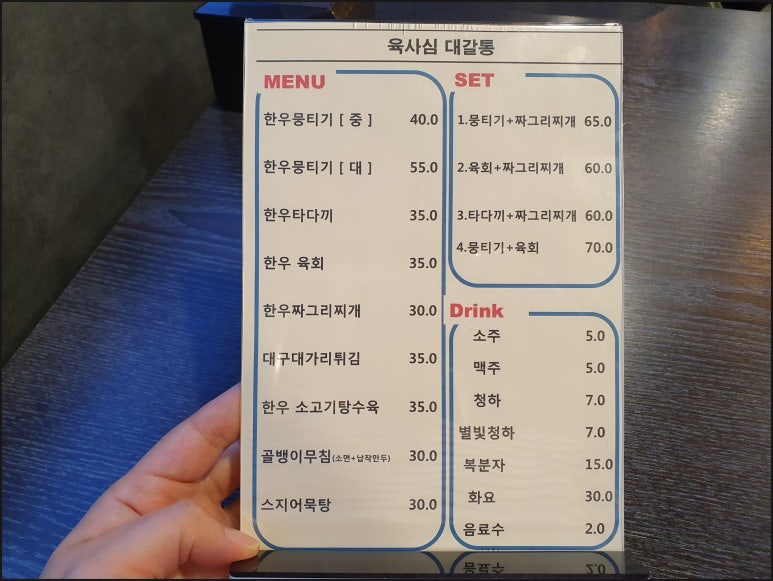 육사심 대갈통
MENU
한우뭉티기 [ 중 ] 40.0
한우뭉티기 [ 대 ] 55.0
한우타다끼 35.0
한우 육회 35.0
한우짜그리찌개 30.0
대구대가리튀김 35.0
한우 소고기탕수육 35.0
골뱅이무침(소면+납작만두) 30.0
스지어묵탕 30.0
SET
1.뭉티기+짜그리찌개 65.0
2.육회+짜그리찌개 60.0
3.타다끼+짜그리찌개 60.0
4.뭉티기+육회 70.0
Drink
소주 5.0
맥주 5.0
청하 7.0
별빛청하 7.0
복분자 15.0
화요 30.0
음료수 2.0